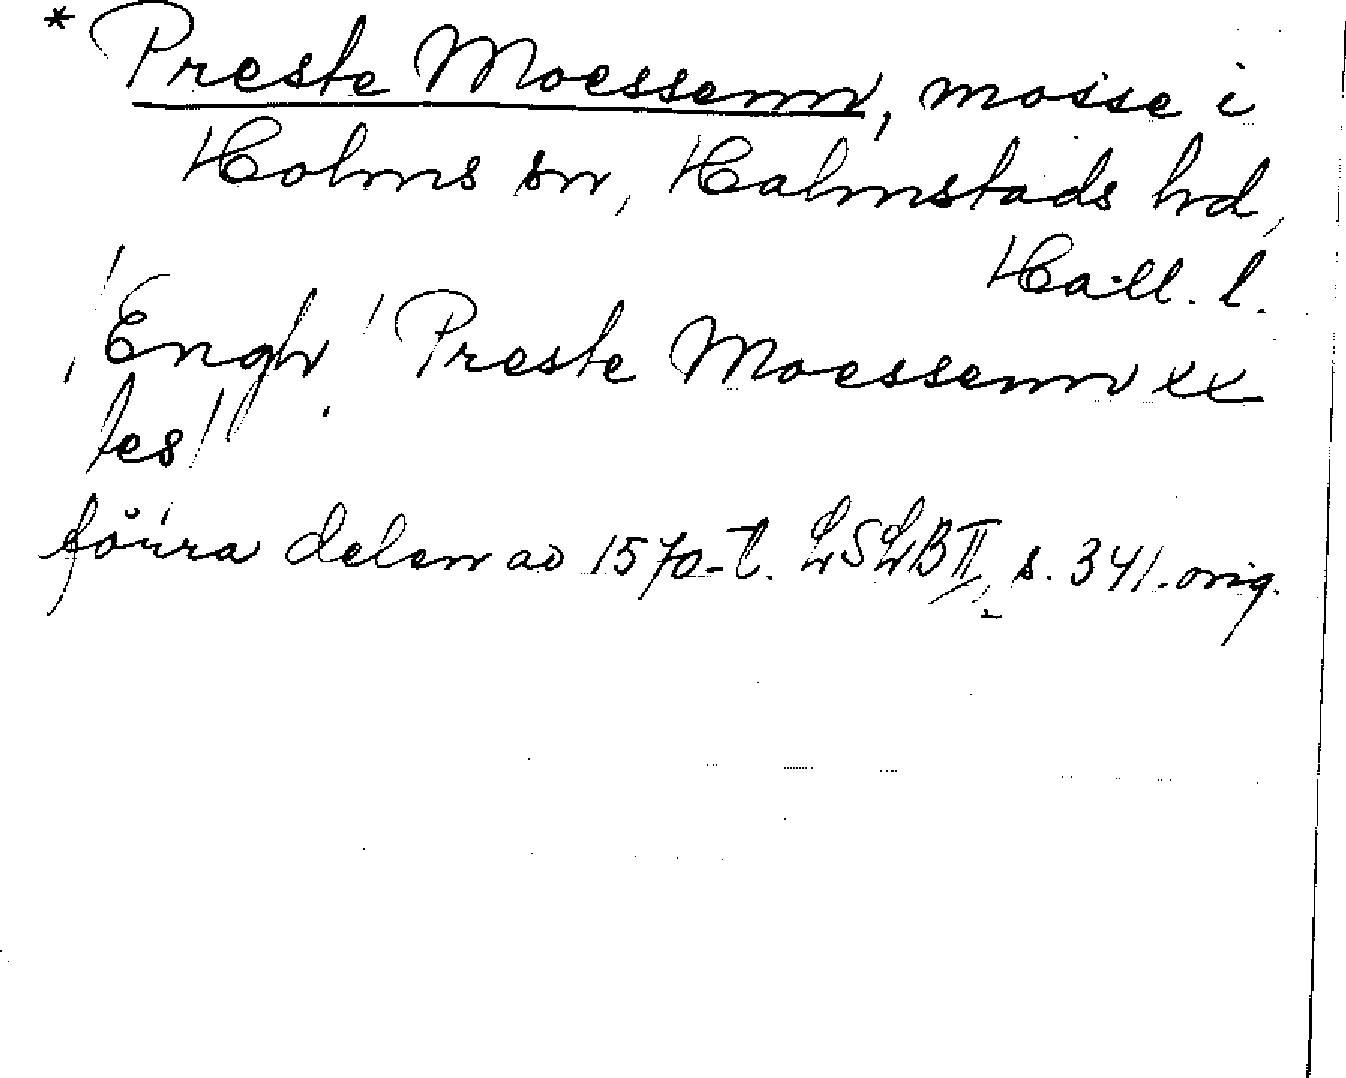 * Preste Moessenn, mosse i
Holms sn, Halmstads hd,
Hall. l.
"Engh" Preste Moessenn xx
les"
förra delen av 1570-t. LSLB II, s. 341. orig.